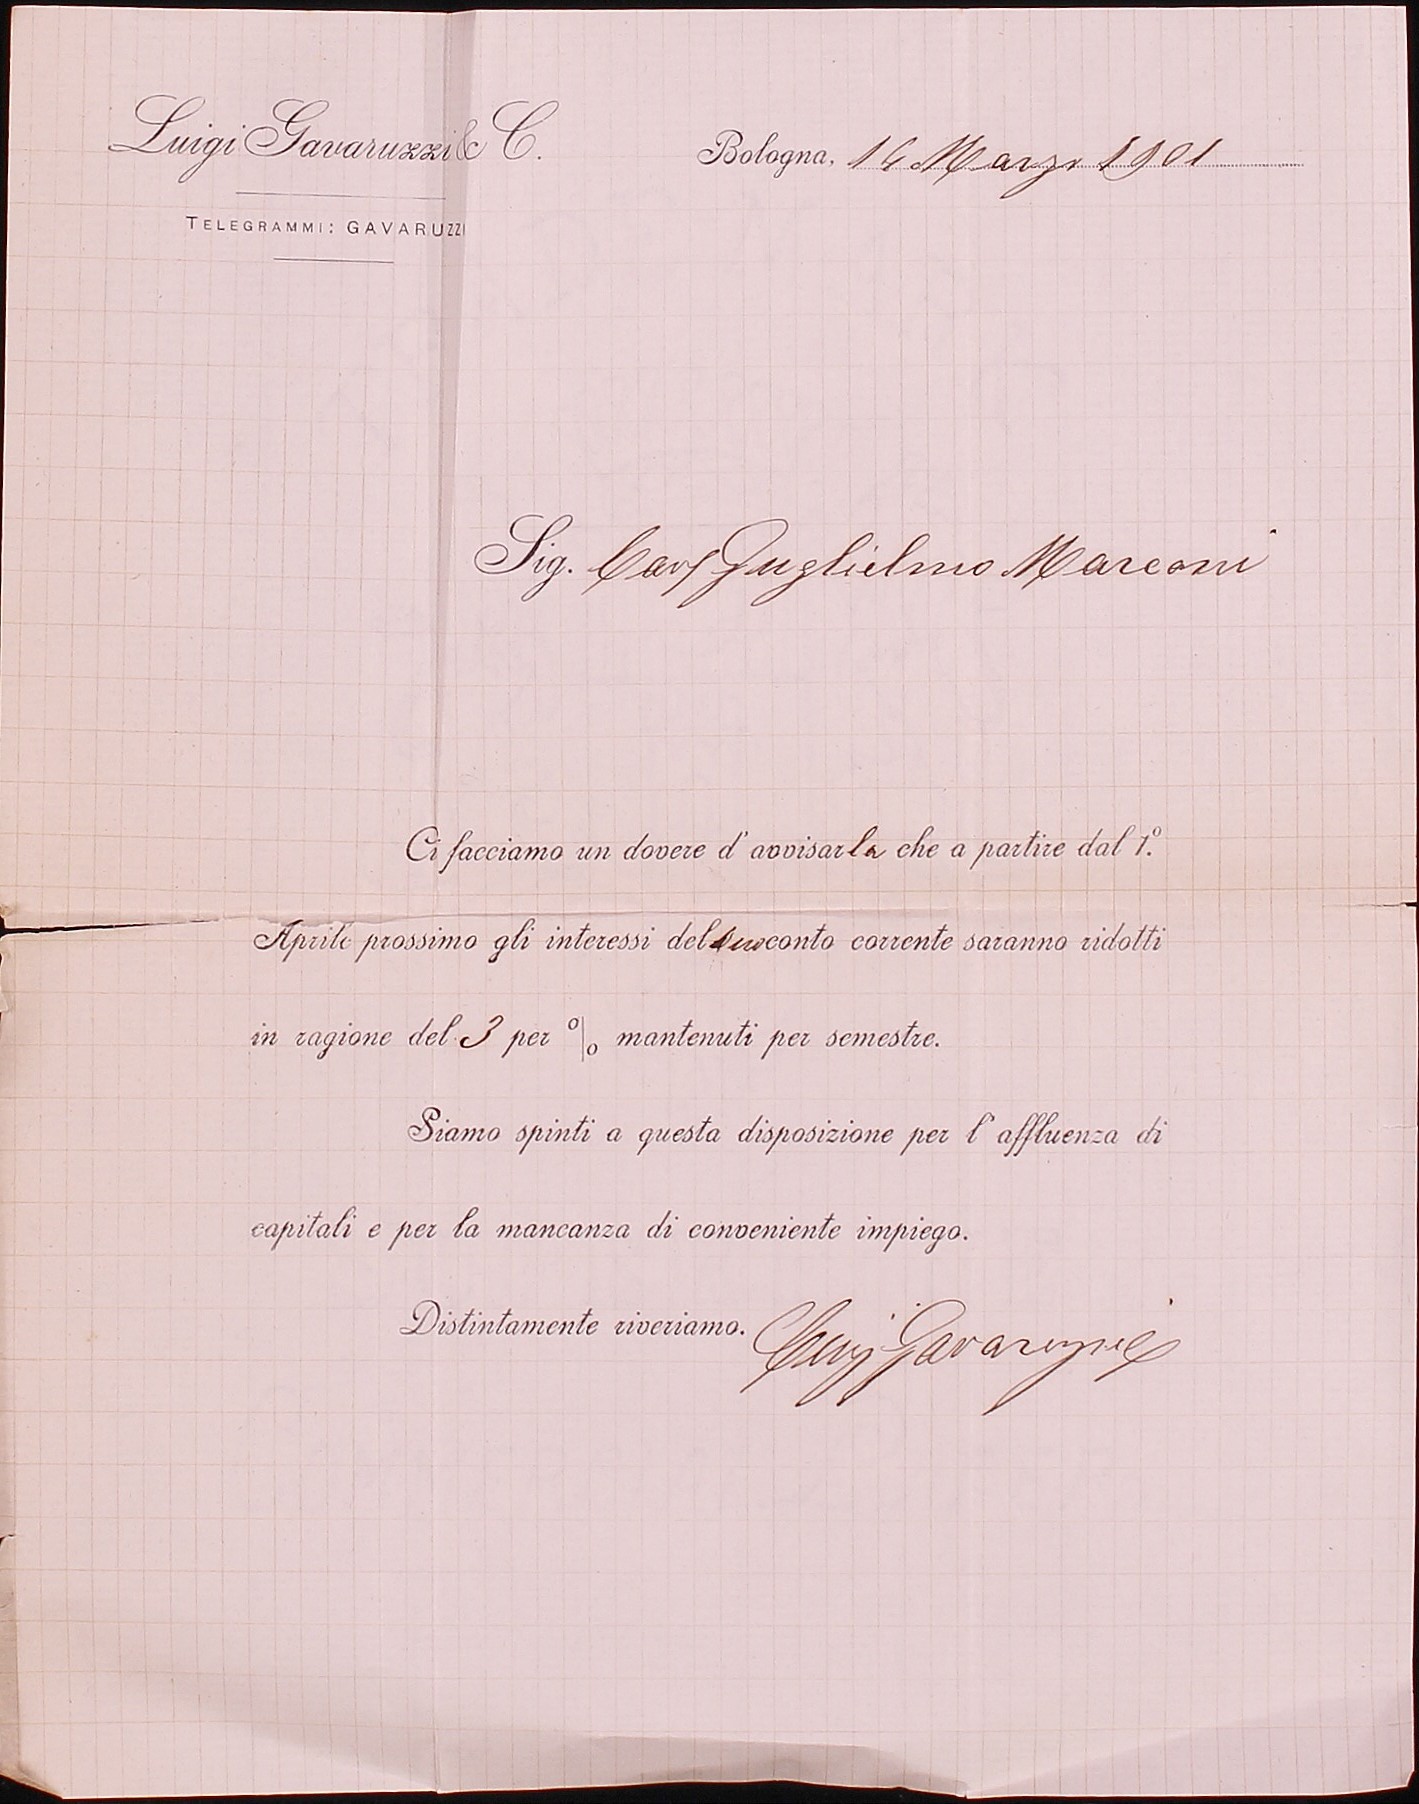 Luigi Gavaruzzi & C.
TELEGRAMMI: GAVARUZZI
Bologna, 14 Marzo 1901
Sig. Cav Guglielmo Marconi
Ci facciamo un dovere d'avvisarla che a partire dal 1º.
Aprile prossimo gli interessi del suo conto corrente saranno ridotti
in ragione del 3 per % mantenuti per semestre.
Siamo spinti a questa disposizione per l'affluenza di
capitali e per la mancanza di conveniente impiego.
Distintamente riveriamo.
Luigi Gavaruzzi